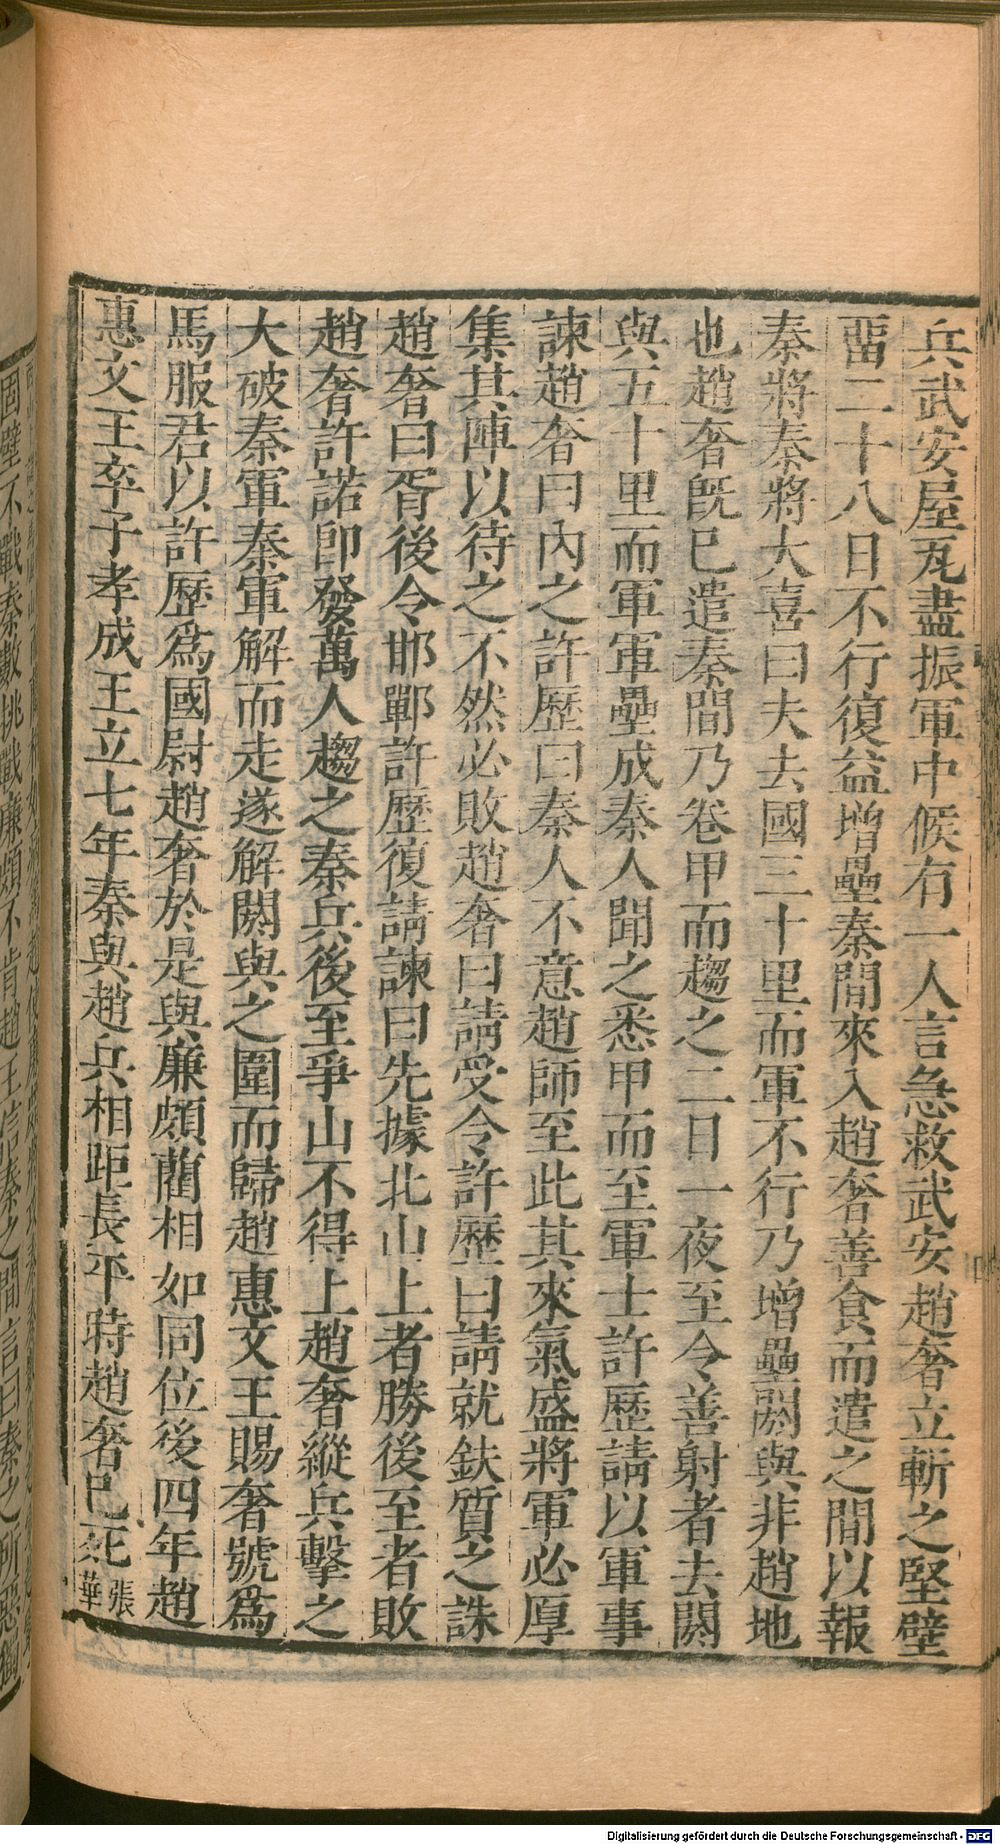 兵武安屋瓦盡振軍中候有一人言急救武安趙奢立斬之堅壁
畱二十八日不行復益增壘秦間來入趙奢善食而遣之間以報
秦將秦將大喜曰夫去國三十里而軍不行乃增壘閼與非趙地
也趙奢旣已遣秦間乃卷甲而趨之二日一夜至令善射者去閼
與五十里而軍軍壘成秦人聞之悉甲而至軍士許歷請以軍事
諫趙奢曰內之許歷曰秦人不意趙師至此其來氣盛將軍必厚
集其陣以待之不然必敗趙奢曰請受令許歷曰請就鈇質之誅
趙奢曰胥後令邯鄲許歷復請諫曰先據北山上者勝後至者敗
趙奢許諾卽發萬人趨之秦兵後至爭山不得上趙奢縱兵擊之
大破秦軍秦軍解而走遂解閼與之圍而歸趙惠文王賜奢號爲
馬服君以許歷爲國尉趙奢於是與廉頗藺相如同位後四年趙
惠文王卒子孝成王立七年秦與趙兵相距長平時趙奢已死張華
固壁不戰秦數挑戰廉頗不肯趙王信秦之間言曰秦之所惡獨
Digitalisierung gefördert durch die Deutsche Forschungsgemeinschaft - DFG